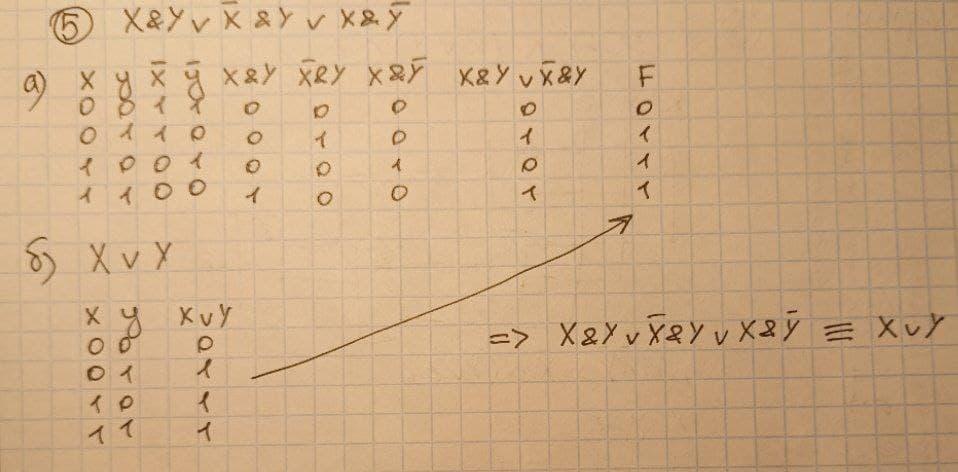 ⑤ X&Y ∨ X̄&Y ∨ X&Ȳ
а) X y X̄ ȳ X&Y X̄&Y X&Ȳ X&Y ∨ X̄&Y F
0 0 1 1 0 0 0 0 0
0 1 1 0 0 1 0 1 1
1 0 0 1 0 0 1 0 1
1 1 0 0 1 0 0 1 1
б) X ∨ Y
X y X∨Y
0 0 0
0 1 1
1 0 1
1 1 1
=> X&Y ∨ X̄&Y ∨ X&ȳ ≡ X∨Y